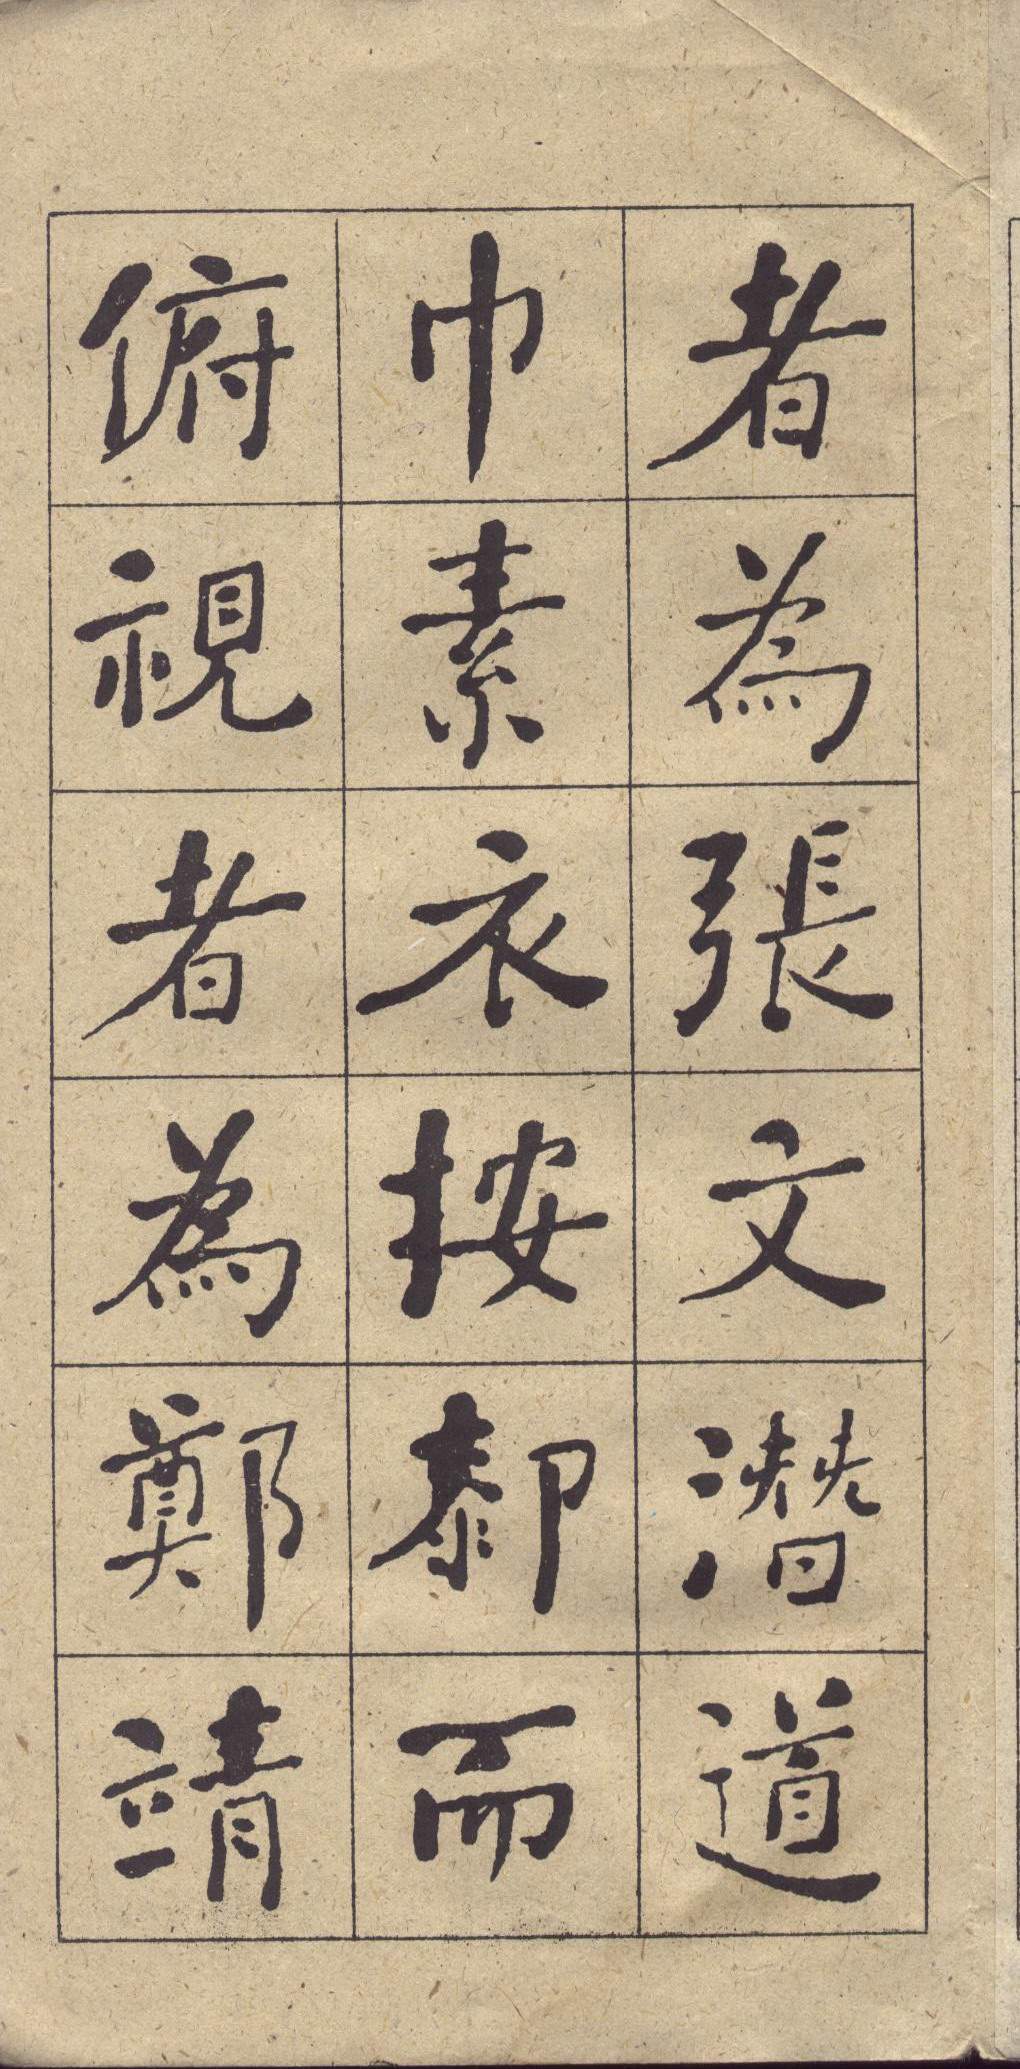 者為張文潛道
巾素衣按膝而
俯視者為鄭靖